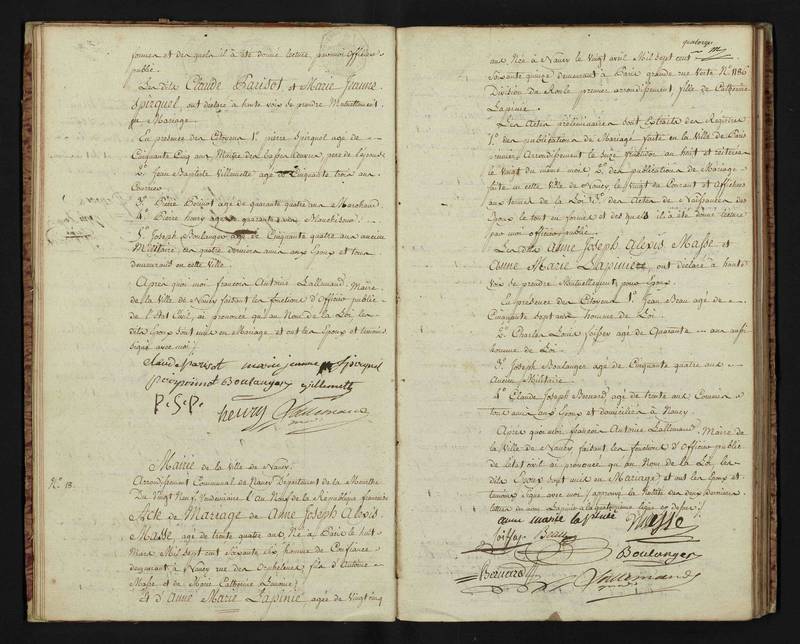 formes et des quels il a été donné lecture, par moi Officier
public.
Les dits Claude Parisot et Marie Jeanne
Spirquel, ont déclaré à haute voix se prendre Mutuellement
en Mariage.
En présence des Citoyens 1° pierre Spirquel agé de
Cinquante Cinq ans, Maître des pere de l'épouse
2° Jean Baptiste Villemette agé Cinquante trois ans
Courrier
3° Pierre Boujot agé de quarante quatre ans Marchand
4° Pierre henry agé quarante ans
5° Joseph Boulanger agé de Cinquante quatre ans ancien
Militaire, ces quatre derniers amis aux Epoux et tous
demeurans en cette Ville
Après quoi moi françois Antoine Lallemand, Maire
de la Ville de Nancy faisant les fonctions d'Officier public
de l'état Civil, ai prononcé qu'au Nom de la Loi, les
dits Epoux sont unis en Mariage et ont les Epoux et temoins
signé avec moi
claude parisot marie jeanne
Boulanger Villemette
P. S. P. henry Lallemand
Mairie de la Ville de Nancy.
N° 13.
Arrondissement Communal de Nancy Département de la Meurthe
Du Vingt Neuf Vendemiaire l'an Neuf de la République française
Acte de Mariage de Anne Joseph Alexis
Masse, agé de trente quatre ans Né à Paris le huit
Mars Mil sept cent soixante six, homme de Confiance
demeurant à Nancy rue des Orphelines, fils d'Antoine
Masse et de Marie Catherine
Et d'Anne Marie Lapinié agée de Vingt cinq
quatorze
ans Née à Nancy le Vingt avril Mil Sept cent
Soixante quinze demeurant à Paris grande rue Verte N° 1186
Division du Roule premier arrondissement, fille de Catherine
Lapinié.
Les Actes préliminaires sont Extraits des Registres
1° des publications de Mariage faite en la Ville de Paris
premier Arrondissement le onze
le Vingt du même mois 2° des publications de Mariage
faite en cette Ville de Nancy le Vingt du Courant et Affichées
aux termes de la Loi 3° des Actes de Naissances des
Epoux le tout en formes et des quels il a été donné lecture
par moi officier public.
Les dits Anne Joseph Alexis Masse et
Anne Marie Lapiniere, ont déclaré à haute
Voix se prendre Mutuellement pour Epoux
En présence des Citoyens 1° Jean Beau agé de
Cinquante Sept ans homme de Loi.
2° Charles Louis agé de Quarante ans aussi
homme de Loi
3° Joseph Boulanger agé de Cinquante quatre ans
Ancien Militaire
4° Claude Joseph Bernard, agé de trente ans
tous amis aux Epoux et domiciliés à Nancy
Après quoi moi, françois Antoine Lallemand, Maire de
la Ville de Nancy faisant les fonctions d'Officier public
de l'état civil ai prononcé qu'au Nom de la Loi les
dits Epoux sont unis en Mariage, et ont les Epoux et
temoins signé avec moi approuvé la rature des deux dernieres
lettres du nom Lapinié à la quatorzieme ligne ci dessus
anne marie lapinié Masse
Beau
Boulanger
Bernard Lallemand